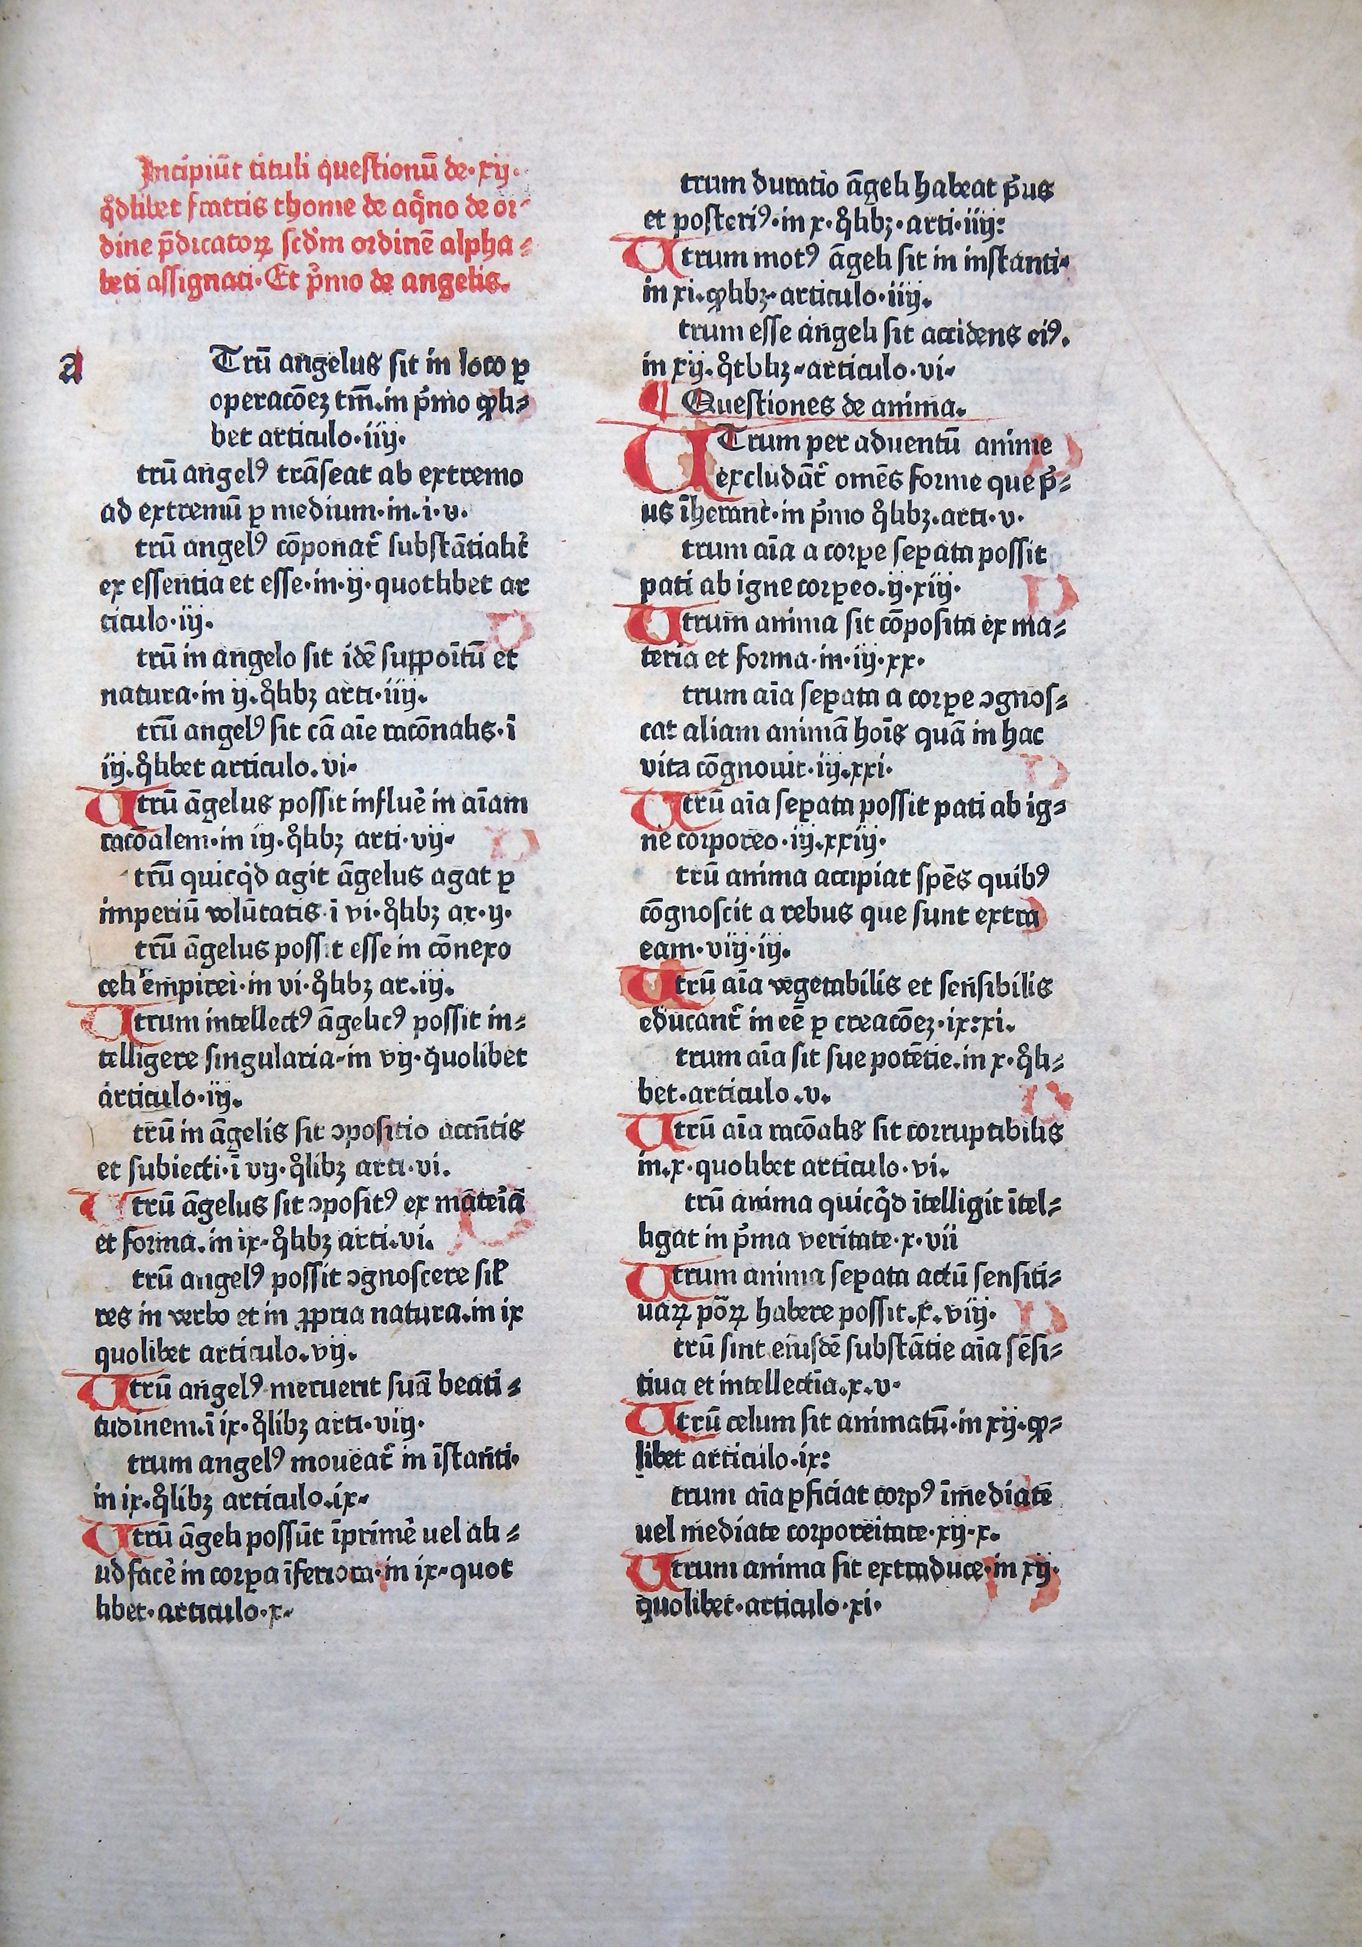 Incipiūt tituli questionū de·xij·
q̊dlibet fratris thome de aq̄no de or⸗
dine p̄dicatoꝝ scd̄m ordinē alpha⸗
beti assignati·Et p̄mo de angelis.
a Trū angelus sit in loco ꝑ
operacōeꝫ tm̄.in p̄mo quoli⸗
bet articulo·iiij·
trū angelꝰ trāseat ab extremo
ad extremū ꝑ medium·in.i·v·
trū angelꝰ cōponat᷑ substātialit᷑
ex essentia et esse·in·ij·quotlibet ar
ticulo·iij.
trū in angelo sit idē suppoītū et
natura·in ij.q̊libꝫ arti·iiij.
trū angelꝰ sit cā aīe racōnalis·ī
iij.q̊libet articulo.vi·
Utrū āgelus possit influe᷑ in aīam
racōalem·in iij·q̊libꝫ arti·vij·
trū quicq̄d agit āgelus agat ꝑ
imperiū volūtatis·ī vi·q̊libꝫ ar·ij·
trū āgelus possit esse in cōnexo
celi empirei·in vi·q̊libꝫ ar.iij.
Utrum intellectꝰ āgelicꝰ possit in⸗
telligere singularia·in vij·quolibet
articulo·iij.
trū in āgelis sit ↄpositio accn̄tis
et subiecti·ī vij·q̊libꝫ arti·vi.
Utrū āgelus sit ↄpositꝰ ex māteiā
et forma.in ix·q̊libꝫ arti.vi.
trū angelꝰ possit ↄgnoscere sil̄
res in verbo et in ꝓpria natura.in ix
quolibet articulo.vij.
Utrū angelꝰ meruerit suā beati⸗
tudinem.ī ix·q̊libꝫ arti·viij·
trum angelꝰ moueat᷑ in īstanti·
in ix.q̊libꝫ articulo.ix·
Utrū āgeli possūt īprime᷑ uel ali⸗
ud face᷑ in corpa īferiora·in ix·quot
libet·articulo·x·
trum duratio āgeli habeat p̄us
et posteriꝰ·in x·q̊libꝫ·arti·iiij:
Utrum motꝰ āgeli sit in instanti·
in xi.quolibꝫ·articulo·iiij.
trum esse angeli sit accidens eiꝰ.
in xij.q̊tlibꝫ·articulo·vi·
¶ Questiones de anima.
UTrum per aduentū anime
excludāt᷑ omēs forme que p̄⸗
us īherant·in p̄mo q̊libꝫ.arti·v·
trum aīa a corꝑe seꝑata possit
pati ab igne corꝑeo.ij·xiij·
Utrum anima sit cōposita ex ma⸗
teria et forma·in·iij·xx·
trum aīa seꝑata a corꝑe ↄgnos⸗
cat aliam animā hoīs quā in hac
vita cōgnouit·iij.xxi·
Utrū aīa seꝑata possit pati ab ig⸗
ne corporeo·iij.xxiij·
trū anima accipiat spēs quibꝰ
cōgnoscit a rebus que sunt extra
eam·viij·iij.
Utrū aīa vegetabilis et sensibilis
educant᷑ in eē ꝑ creacōeꝫ·ix:xi.
trum aīa sit sue potētie.in x·q̊li⸗
bet·articulo.v.
Utrū aīa racōalis sit corruptibilis
in.x·quolibet articulo·vi.
trū anima quicq̄d ītelligit ītel⸗
ligat in p̄ma veritate·x·vii
Utrum anima seꝑata actū sensiti⸗
uaꝝ pōꝝ habere possit.x.viij·
trū sint eiusdē substātie aīa sēsi⸗
tiua et intellectīa.x.v·
Utrū celum sit animatū·in xij·quo⸗
libet articulo·ix:
trum aīa ꝑficiat corpꝰ īmediatē
uel mediate corporeitate·xij·x.
Utrum anima sit extraduce·in xij·
quolibet·articulo·xi·